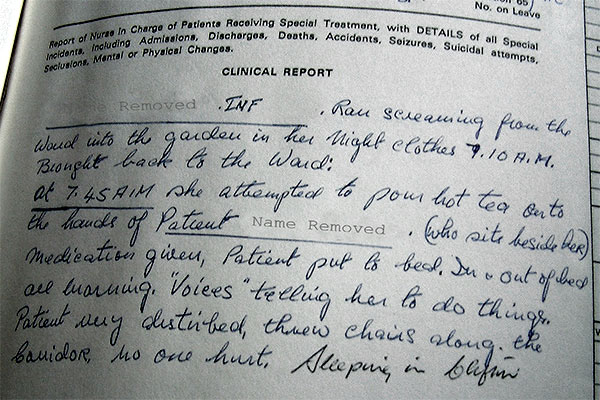 No. on Leave
Report of Nurse in Charge of Patients Receiving Special Treatment, with DETAILS of all Special
Incidents, Including Admissions, Discharges, Deaths, Accidents, Seizures, Suicidal attempts,
Seclusions, Mental or Physical Changes.
CLINICAL REPORT
Name Removed . INF . Ran screaming from the
Ward into the garden in her Night clothes 7.10 A.M.
Brought back to the Ward:
at 7.45 AM she attempted to pour hot tea onto
the hands of Patient Name Removed . (who sits beside her)
Medication given, Patient put to bed. In & out of bed
all morning. "Voices" telling her to do things.
Patient very disturbed, threw chairs along the
Corridor, no one hurt. Sleeping in